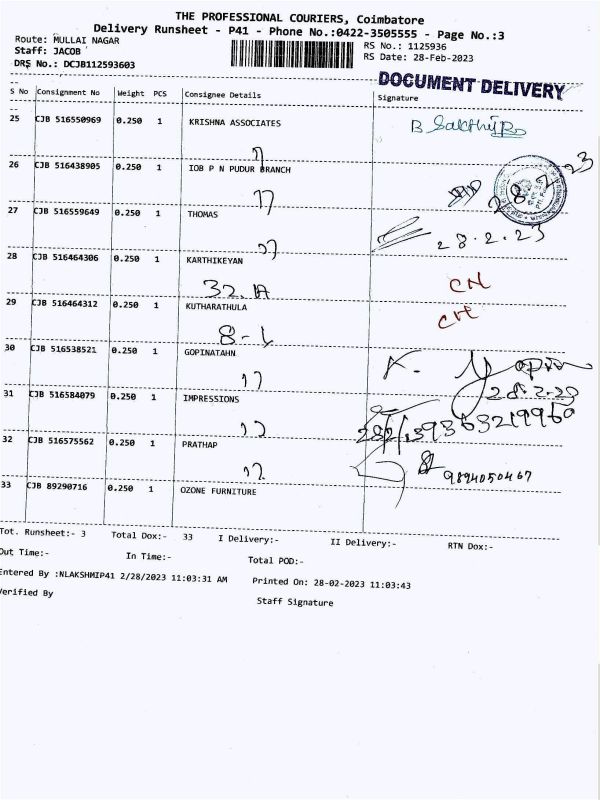 THE PROFESSIONAL COURIERS, Coimbatore
Delivery Runsheet - P41 - Phone No.:0422-3505555 - Page No.:3
Route: MULLAI NAGAR
RS No.: 1125936
Staff: JACOB
RS Date: 28-Feb-2023
DRS No.: DCJB112593603
DOCUMENT DELIVERY
S No Consignment No Weight PCS Consignee Details Signature
25 CJB 516550969 0.250 1 KRISHNA ASSOCIATES
17
26 CJB 516438905 0.250 1 IOB P N PUDUR BRANCH
17
27 CJB 516559649 0.250 1 THOMAS 28.2.23
28 CJB 516464306 0.250 1 KARTHIKEYAN CN
32.A
29 CJB 516464312 0.250 1 KUTHARATHULA CN
8-L
30 CJB 516538521 0.250 1 GOPINATAHN K. Gopin
17 28.2.23
31 CJB 516584079 0.250 1 IMPRESSIONS
32 CJB 516575562 0.250 1 PRATHAP
17 9894050467
33 CJB 89290716 0.250 1 OZONE FURNITURE
Tot. Runsheet:- 3 Total Dox:- 33 I Delivery:- II Delivery:- RTN Dox:-
Out Time:- In Time:- Total POD:-
Entered By :NLAKSHMIP41 2/28/2023 11:03:31 AM Printed On: 28-02-2023 11:03:43
Verified By Staff Signature